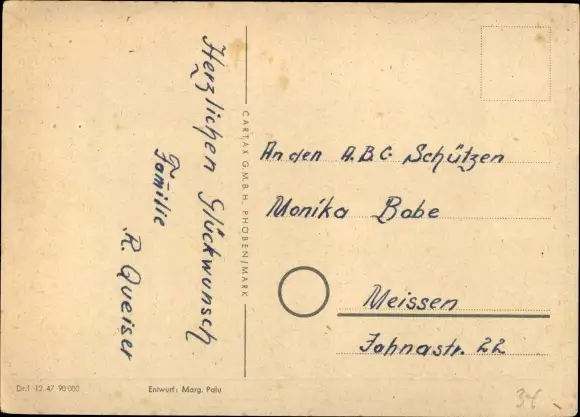 Herzlichen Glückwunsch
Familie
R. Queiser
CARTAX G.M.B.H. PHÖBEN/MARK
An den A.B.C. Schützen
Monika Bobe
Meissen
Jahnastr. 22
Dr.1 12.47 90000
Entwurf: Marg. Palu
34